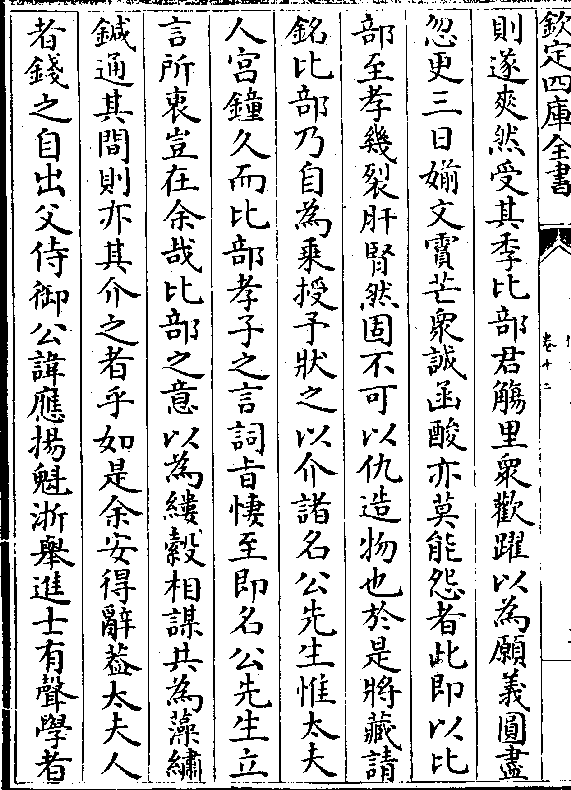 欽定四庫全書
卷十二
則遂爽然受其季比部君觴里衆歡躍以為願義圓盡
忽更三日媊文霣芒衆誠函酸亦莫能怨者此即以比
部至孝幾裂肝腎然固不可以仇造物也於是將藏請
銘比部乃自為乘授予狀之以介諸名公先生惟太夫
人宮鐘久而比部孝子之言詞旨悽至即名公先生立
言所衷豈在余哉比部之意以為縷縠相謀共為藻繡
鍼通其間則亦其介之者乎如是余安得辭葢太夫人
者錢之自出父侍御公諱應揚魁浙舉進士有聲學者